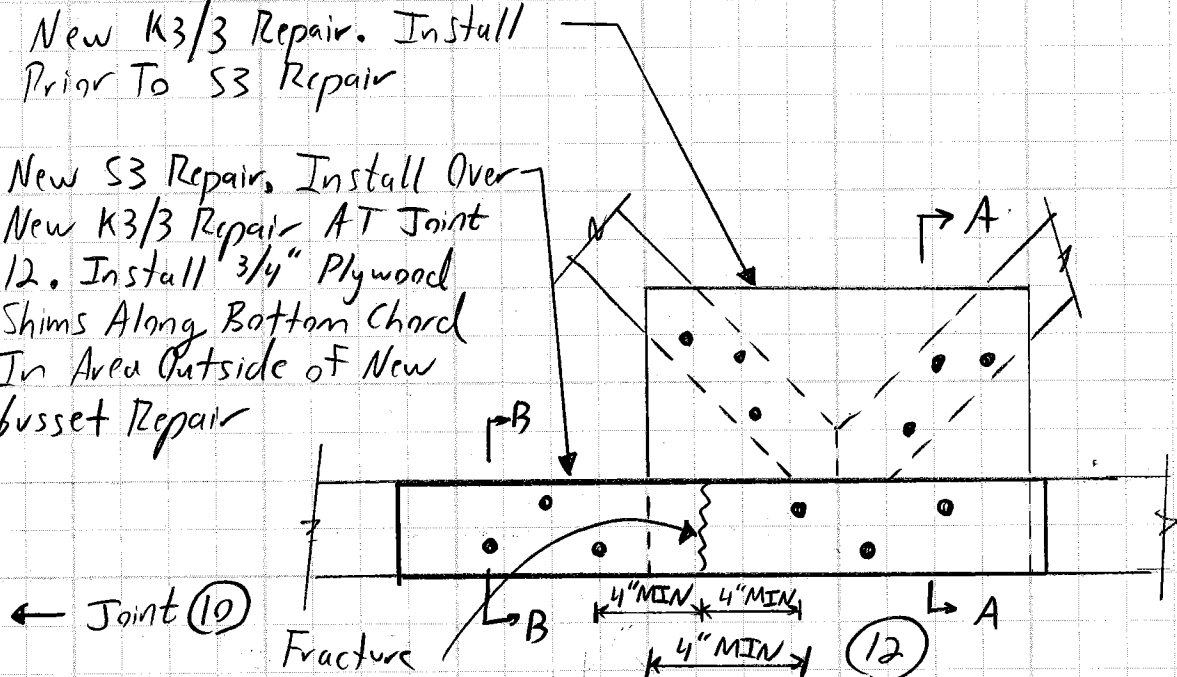 New K3/3 Repair. Install
Prior To S3 Repair
New S3 Repair. Install Over
New K3/3 Repair AT Joint
12. Install 3/4" Plywood
Shims Along Bottom Chord
In Area Outside of New
Gusset Repair
A
B
4"MIN 4"MIN
← Joint 10
B
A
Fracture
4"MIN
12